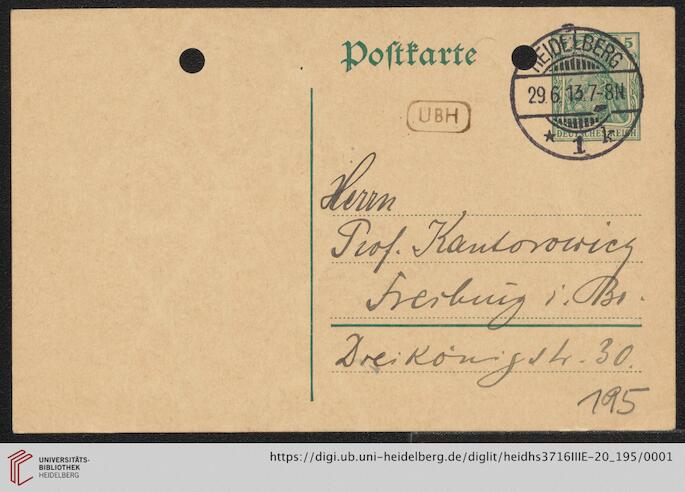 Postkarte
5
HEIDELBERG
29.6.13.7-8N
* 1 k
DEUTSCHES REICH
UBH
Herrn
Prof. Kantorowicz
Freiburg i. Br.
Dreikönigstr. 30.
195
UNIVERSITÄTS-
BIBLIOTHEK
HEIDELBERG
https://digi.ub.uni-heidelberg.de/diglit/heidhs3716IIIE-20_195/0001